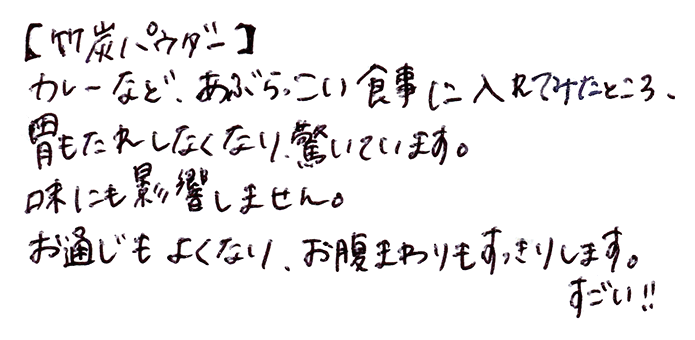 【竹炭パウダー】
カレーなど、あぶらっこい食事に入れてみたところ、
胃もたれしなくなり、驚いています。
味にも影響しません。
お通じもよくなり、お腹まわりもすっきりします。
すごい!!